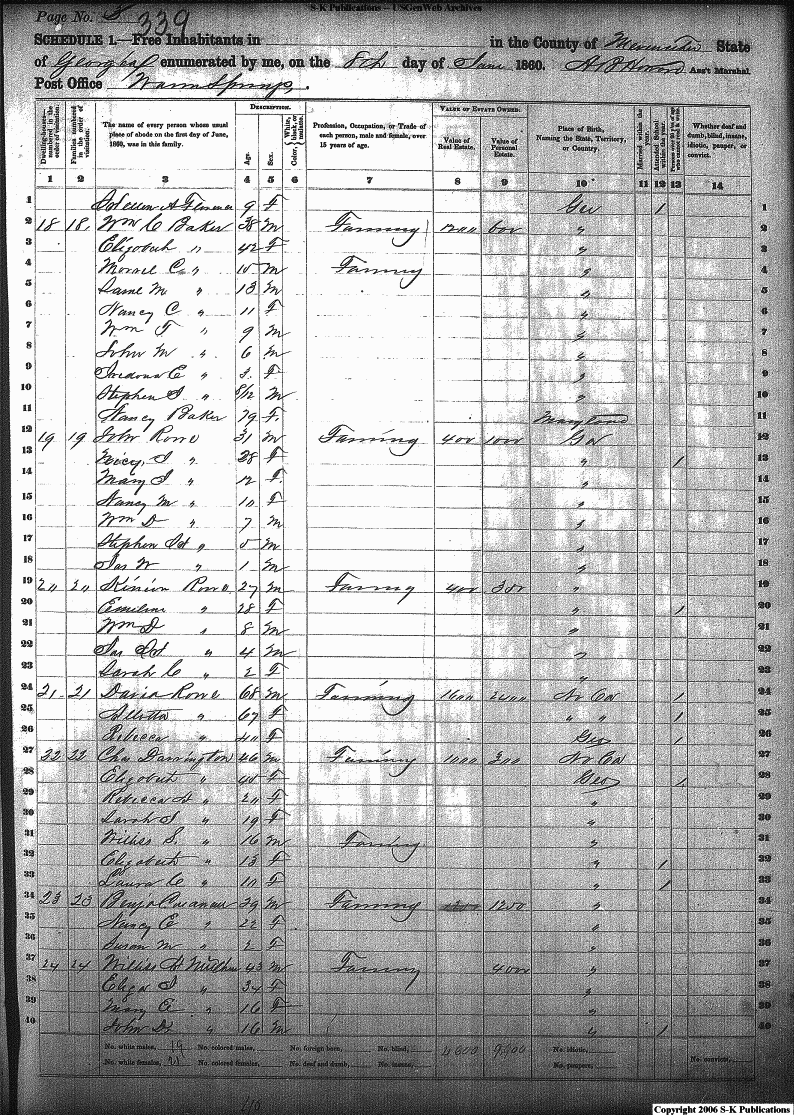 S-K Publications – USGenWeb Archives
Page No. 5
339
SCHEDULE 1.—Free Inhabitants in in the County of State
of Georgia enumerated by me, on the 8th day of June 1860. Ass't Marshal
Post Office Warm Springs
Dwelling-houses—numbered in the order of visitation.
Families numbered in the order of visitation.
The name of every person whose usual place of abode on the first day of June, 1860, was in this family.
DESCRIPTION.
Age.
Sex.
Color, White, black, or mulatto.
Profession, Occupation, or Trade of each person, male and female, over 15 years of age.
VALUE OF ESTATE OWNED.
Value of Real Estate.
Value of Personal Estate.
Place of Birth, Naming the State, Territory, or Country.
Married within the year.
Attended School within the year.
Persons over 20 y'rs of age who cannot read & write.
Whether deaf and dumb, blind, insane, idiotic, pauper, or convict.
1 2 3 4 5 6 7 8 9 10 11 12 13 14
1 9 F Geo 1 1
2 18 18 Wm C Baker 38 M Farming 1200 600 " 2
3 Elizabeth " 42 F " 3
4 C " 15 M Farming " 4
5 M " 13 M " 5
6 Nancy C " 11 F " 6
7 Wm F " 9 M " 7
8 John M " 6 M " 8
9 E " 3 F " 9
10 Stephen S " 8/12 M " 10
11 Nancy Baker 79 F Maryland 11
12 19 19 John Rowe 31 M Farming 400 1000 Geo 12
13 " 28 F " 1 13
14 Mary S " 12 F " 14
15 Nancy M " 10 F " 15
16 Wm D " 7 M " 16
17 Stephen " 5 M " 17
18 Jas W " 1 M " 18
19 20 20 Rowe 27 M Farming 400 300 " 19
20 Emiline " 28 F " 1 20
21 Wm D " 8 M " 21
22 Jas " 4 M " 22
23 Sarah C " 2 F " 23
24 21 21 David Rowe 68 M Farming 1600 2400 No Ca 1 24
25 " 67 F " " 1 25
26 Rebecca " 40 F Geo 1 26
27 22 22 Chas Darrington 46 M Farming 1000 300 No Ca 27
28 Elizabeth " 40 F Geo 1 28
29 Rebecca " 20 F " 29
30 Sarah J " 19 F " 30
31 Willis S. " 16 M Farming " 31
32 Elizabeth " 13 F " 1 32
33 Laura C " 10 F " 1 33
34 23 23 Benj 39 M Farming 1250 " 34
35 Nancy E " 22 F " 35
36 Susan M " 2 F " 36
37 24 24 Willis 43 M Farming 400 " 37
38 Eliza S " 34 F " 38
39 Mary E " 16 F " 39
40 John D " 16 M " 1 40
No. white males, 19 No. colored males, No. foreign born, No. blind, No. idiotic,
No. white females, 21 No. colored females, No. deaf and dumb, No. insane, No. paupers, No. convicts,
Copyright 2006 S-K Publications